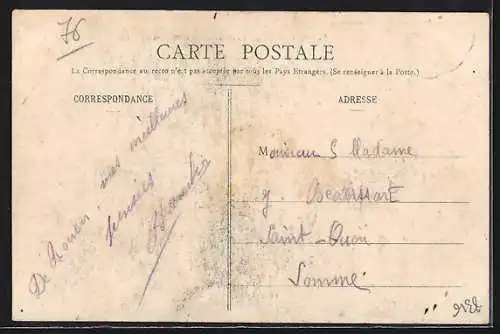 76
CARTE POSTALE
La Correspondance au recto n'est pas acceptée par tous les Pays Etrangers. (Se renseigner à la Poste.)
CORRESPONDANCE
De Rouen, mes meilleures
pensées
ADRESSE
Monsieur & Madame
Saint-Ouen
Somme